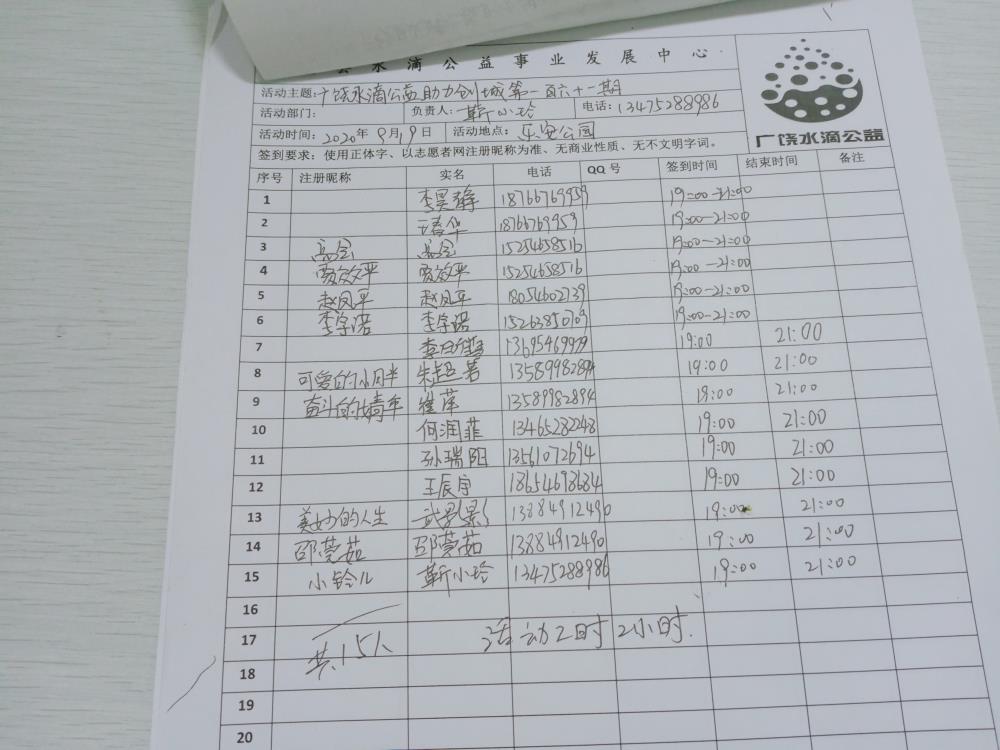 水滴公益事业发展中心
活动主题:广饶水滴公益助力创城第一百六十一期
活动部门: 负责人:靳小玲 电话:13475288986
活动时间:2020年9月19日 活动地点:乐安公园
签到要求:使用正体字、以志愿者网注册昵称为准、无商业性质、无不文明字词。
广饶水滴公益
序号 注册昵称 实名 电话 QQ号 签到时间 结束时间 备注
1 李昊 18766769959 19:00-21:00
2 华 18766769959 19:00-21:00
3 高会 高会 15254658516 19:00-21:00
4 贾效平 贾效平 15254658516 19:00-21:00
5 赵凤平 赵凤平 18054602739 19:00-21:00
6 李宇诺 李宇诺 15263850709 19:00-21:00
7 13695469979 19:00 21:00
8 可爱的小胖 朱超若 13589982894 19:00 21:00
9 奋斗的青年 崔萍 13589982894 19:00 21:00
10 何润菲 13465282248 19:00 21:00
11 孙瑞阳 13561072694 19:00 21:00
12 王辰宇 18654698684 19:00 21:00
13 美妙的人生 13884912490 19:00 21:00
14 邵蔓茹 邵蔓茹 13884912490 19:00 21:00
15 小铃儿 靳小玲 13475288986 19:00 21:00
16
17 共15人 活动2时 2小时.
18
19
20